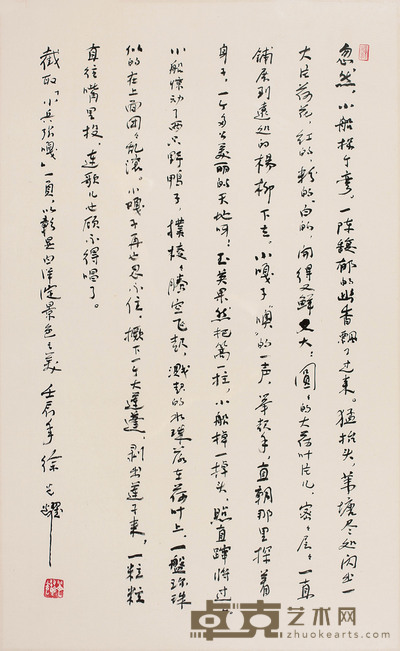 忽然，小船拐个弯，一阵馥郁的幽香飘了过来。猛抬头，苇塘尽处闪出一
大片荷花，红的，粉的，白的，开得又鲜又大；圆々的大荷叶片儿，密々层々，一直
铺展到远处的杨柳下去。小嘎子“噢”的一声，举起手，直朝那里探着
身子，一个多么美丽的天地呀！玉英果然把篙一拄，小船掉一掉头，照直蹿将过
小船惊动了两只野鸭子，扑棱々腾空飞起，溅起的水珠落在荷叶上，一盘珍珠
似的在上面团々乱滚。小嘎子再也忍不住，撅下一个大莲蓬，剥出莲子来，一粒粒
直往嘴里投，连歌儿也顾不得唱了。
截取“小兵张嘎”一页，以彰显白洋淀景色之美 壬辰年 徐光耀
卓克艺术网
zhuokearts.com